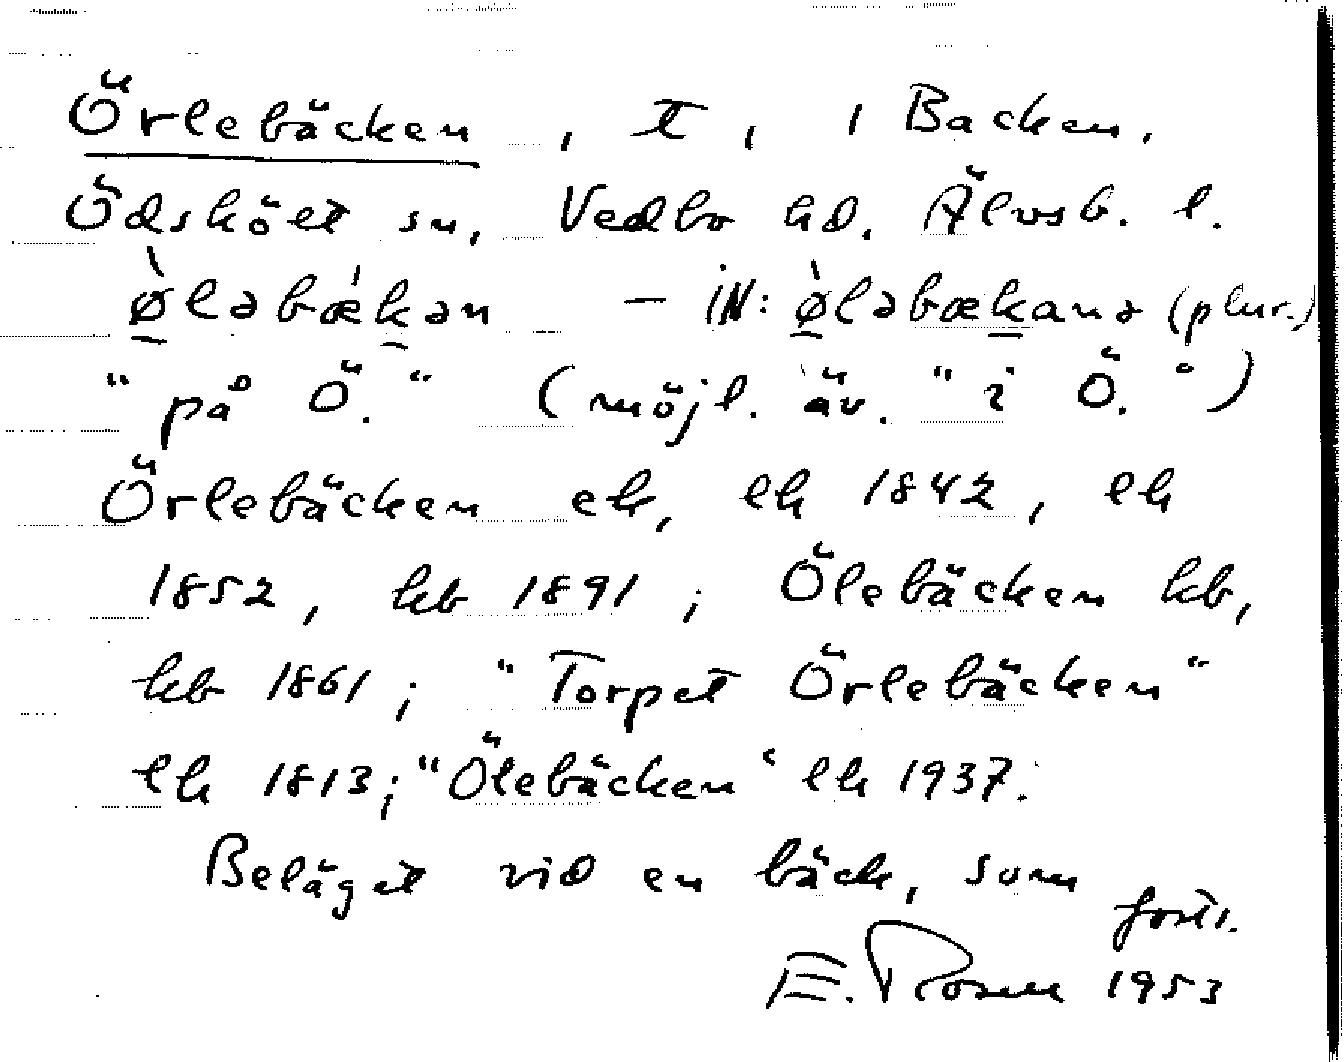 Örlebäcken, t, i Backen,
Ödskölt sn, Vedbo hd. Älvsb. l.
ø̀ləbækən – iN: ø̀ləbækanə (plur.)
"på Ö." (möjl. äv. "i Ö.")
Örlebäcken ek, lk 1842, lk
1852, kb 1891; Ölebäcken kb,
kb 1861; "Torpet Örlebäcken"
lk 1813; "Ölebäcken" lk 1937.
Beläget vid en bäck, som
forts.
E. Rosell 1953